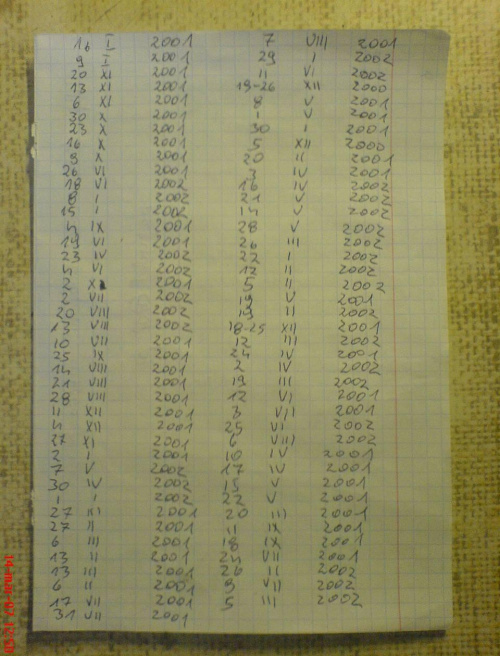 16 I 2001 7 VIII 2001
9 I 2001 29 I 2002
20 XI 2001 11 VI 2002
13 XI 2001 19-26 XII 2000
6 XI 2001 8 V 2001
30 X 2001 1 V 2001
23 X 2001 30 I 2001
16 X 2001 5 XII 2000
9 X 2001 20 II 2001
26 VI 2001 3 IV 2001
18 VI 2002 16 IV 2002
8 I 2002 21 V 2002
15 I 2002 14 V 2002
4 IX 2001 28 V 2002
19 VI 2001 26 III 2002
23 IV 2002 22 I 2002
4 VI 2002 12 II 2002
2 X 2001 5 II 2002
2 VII 2002 19 V 2001
20 VIII 2002 19 II 2002
13 VIII 2002 18-25 XII 2001
10 VII 2001 12 III 2002
25 IX 2001 24 IV 2001
14 VIII 2001 2 IV 2002
21 VIII 2001 19 III 2002
28 VIII 2001 12 VI 2001
11 XII 2001 3 VII 2001
4 XII 2001 25 VI 2002
27 XI 2001 6 VIII 2002
2 I 2001 10 IV 2001
7 V 2002 17 IV 2001
30 IV 2002 15 V 2001
1 I 2002 22 V 2001
27 III 2001 20 III 2001
27 II 2001 11 IX 2001
6 III 2001 18 IX 2001
13 II 2001 24 VII 2001
13 III 2001 26 II 2002
6 II 2001 9 VII 2002
17 VII 2001 5 III 2002
31 VII 2001
14-mar-07 12:58